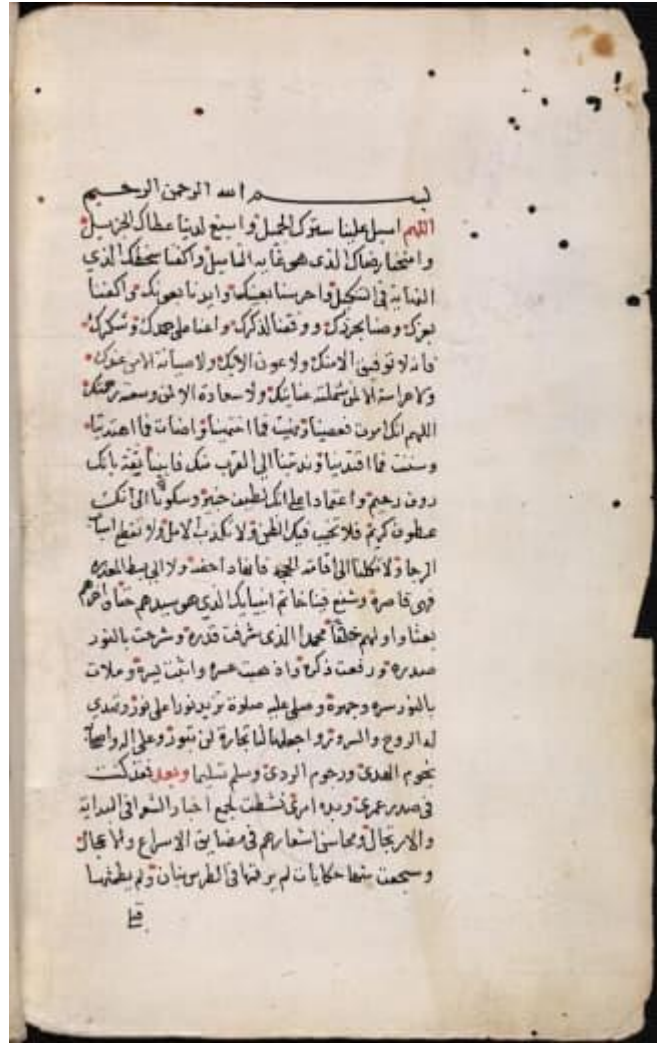 بسم الله الرحمن الرحيم
اللهم اسبل علينا ستورك الجميل واسبغ لدينا عطاك الجزيل
وامنحنا رضاك الذي هو غاية الماسيل واكفنا سخطك الذي
النهاية في التنكيل واحرسنا بعينك وايدنا بعونك واكفنا
بعزك وصنا بحرزك ووفقنا لذكرك واعنا على حمدك وشكرك
فانه لا توفيق الا منك ولا عون الا بك ولا صيانة الا من عندك
ولا حراسة الا لمن شملته عنايتك ولا سعادة الا لمن وسعته رحمتك
اللهم انك امرت فعصينا ونهيت فما انتهينا واضات فما اهتدينا
وسننت فما اقتدينا وندبتنا الى القرب منك فابينا ثقة بانك
روف رحيم واعتمادا على انك لطيف خبير وسكونا الى انك
عطوف كريم فلا تخيب فيك الظن ولا تكذب الامل ولا تقطع اسباب
الرجا ولا تكلنا الى اقامة الحجة فانها داحضة ولا الى بسط المعذرة
فهي قاصرة وشفع فينا خاتم انبيايك الذي هو سيدهم حقا واخرهم
بعثا واولهم خلقا محمدا الذي شرفت قدره وشرحت بالنور
صدره ورفعت ذكره واذهبت عسره واثبت يسره وملات
بالنور سره وجهره وصلى عليه صلوة تزيد نورا على نور وتهدي
له الروح والسرور واجعلها لنا تجارة لن تبور وعلى اله واصحابه
نجوم الهدى ورجوم الردى وسلم تسليما وبعد فقد كنت
في صدر عمري وبدء امري نشطت لجمع اخبار الشعرا في البداية
والارتجال ومحاسن اشعارهم في مضايق الاسراع والاعجال
وسمعت منها حكايات لم يرقها في الطرس بنان ولم يطمثها
قبل